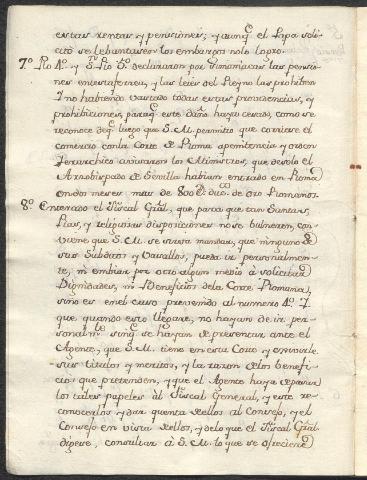 estas rentas, y pensiones; y aunq.e el Papa soli-
citó se lebantasen los embargos nolo logro.
7.º Pio 4.º, y S.n Pio 5.º declararon por simoniacas las pensio-
nes enestraferreu, y las leies del Reyno las prohiben
Y no habiendo vastado todas estas providencias, y
prohibiciones, paraq.e este daño haya cesado, como se
reconoce deq.e luego que S. M. permitio que corriese el
comercio conla Corte de Roma apenitencia, y orden
Jerarchico avisaron los Ministros, que desolo el
Arzobispado de Sevilla habian entrado en Roma
endos meses mas de 800 duc.os de oro Romanos.
8.º Enterado el Fiscal Gral, que para que tan Santas,
Pias, y religiosas disposiciones no se bulneren, con-
viene que S. M. se sirva mandar, que ninguno de
sus Subditos y Vasallos, pueda ir personalmen-
te, ni embiar por otro algun medio à solicitar
Dignidades, ni Beneficios dela Corte Romana,
sino es enel caso prevenido al numero 4.º Y
que quando esto llegare, no hayan de ir per-
sonalm.te sinq.e se hayan de presentar ante el
Agente, que S. M. tiene en esta Corte, y exivirle
sus titulos y meritos, y la razon delos benefi-
cios que pretenden, y que el Agente haya de pasar
los tales papeles al Fiscal General, y este re-
conocerlos y dar quenta dellos al Consejo, y el
Consejo en vista dellos, y delo que el Fiscal Gral
digere, consultar à S. M. lo que se ofreciere